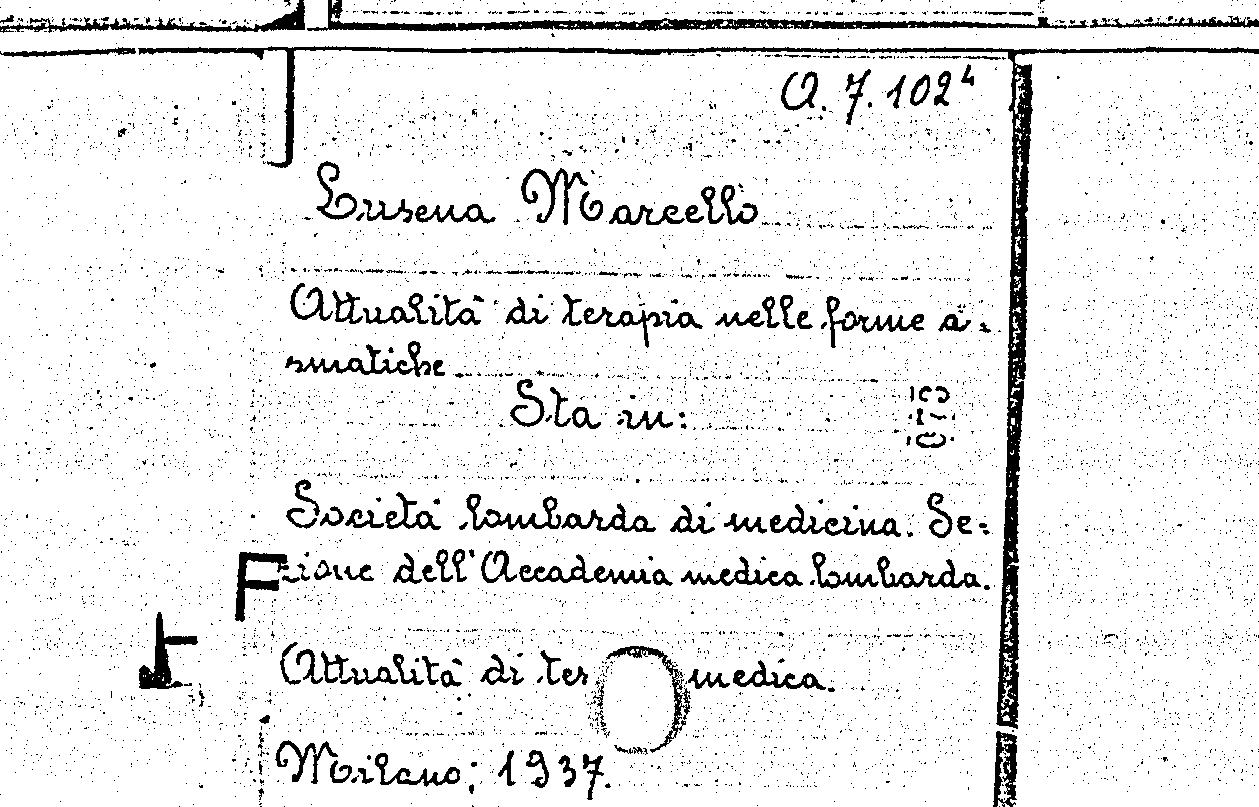 A. 7. 102⁴
Lusena Marcello
Attualità di terapia nelle forme a-
smatiche
Sta in:
Società lombarda di medicina. Se-
zione dell'Accademia medica lombarda.
Attualità di ter medica.
Milano; 1937.